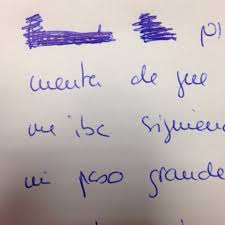 cuenta de que
me iba siguiend
mi paso grande